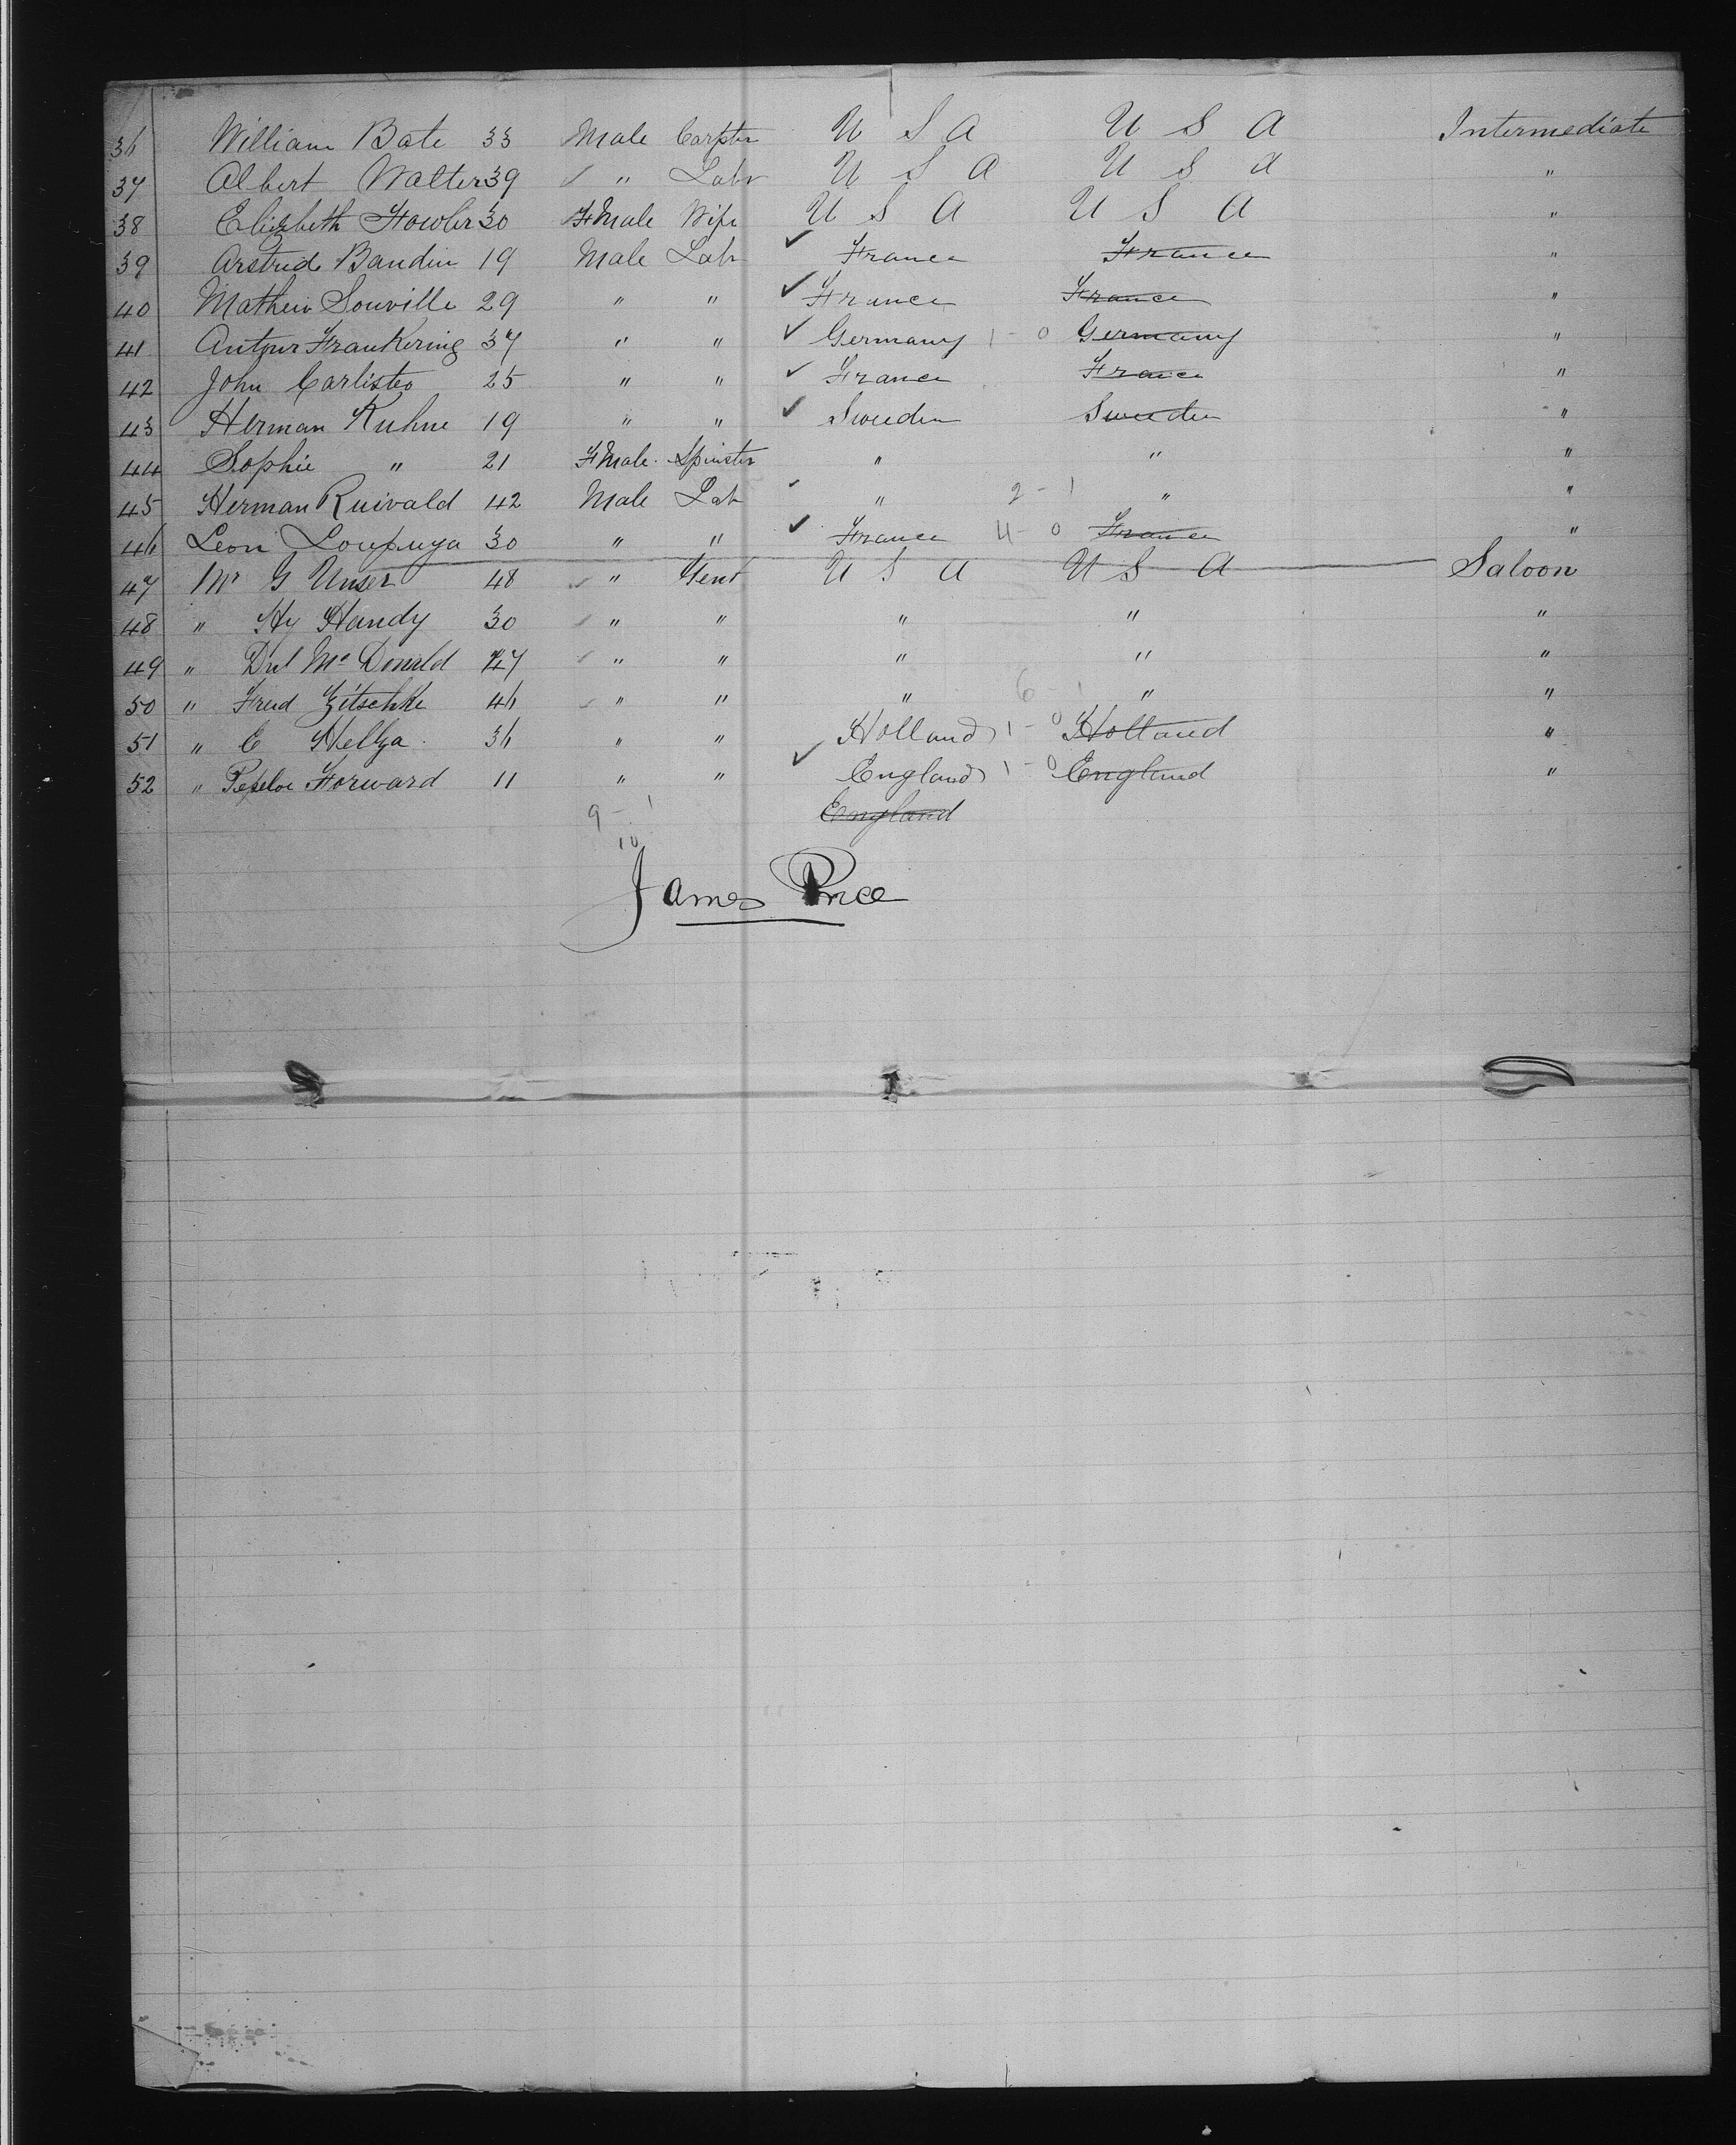 36 William Bate 33 Male Carptr U S A U S A Intermediate
37 Albert Walter 39 ✓ " Labr U S A U S A "
38 Elizbeth Fowler 30 FMale Wife U S A U S A "
39 Baudin 19 Male Labr ✓ France France "
40 Mathew Souville 29 " " ✓ France France "
41 37 " " ✓ Germany 1-0 Germany "
42 John Carlisteo 25 " " ✓ France France "
43 Herman Kuhne 19 " " ✓ Sweden Sweden "
44 Sophie " 21 FMale Spinster " " "
45 Herman Ruivald 42 Male Lab ✓ " 2-1 " "
46 Leon 30 " " ✓ France 4-0 France "
47 Mr G Unser 48 ✓ " Gent U S A U S A Saloon
48 " Hy Handy 30 ✓ " " " " "
49 " Dnl Mc Donald 47 ✓ " " " " "
50 " Fred Zitschke 46 ✓ " " " 6-1 " "
51 " E 36 " " Holland 1-0 Holland "
52 " Forward 11 " " ✓ England 1-0 England "
9-1 England
10
James Price